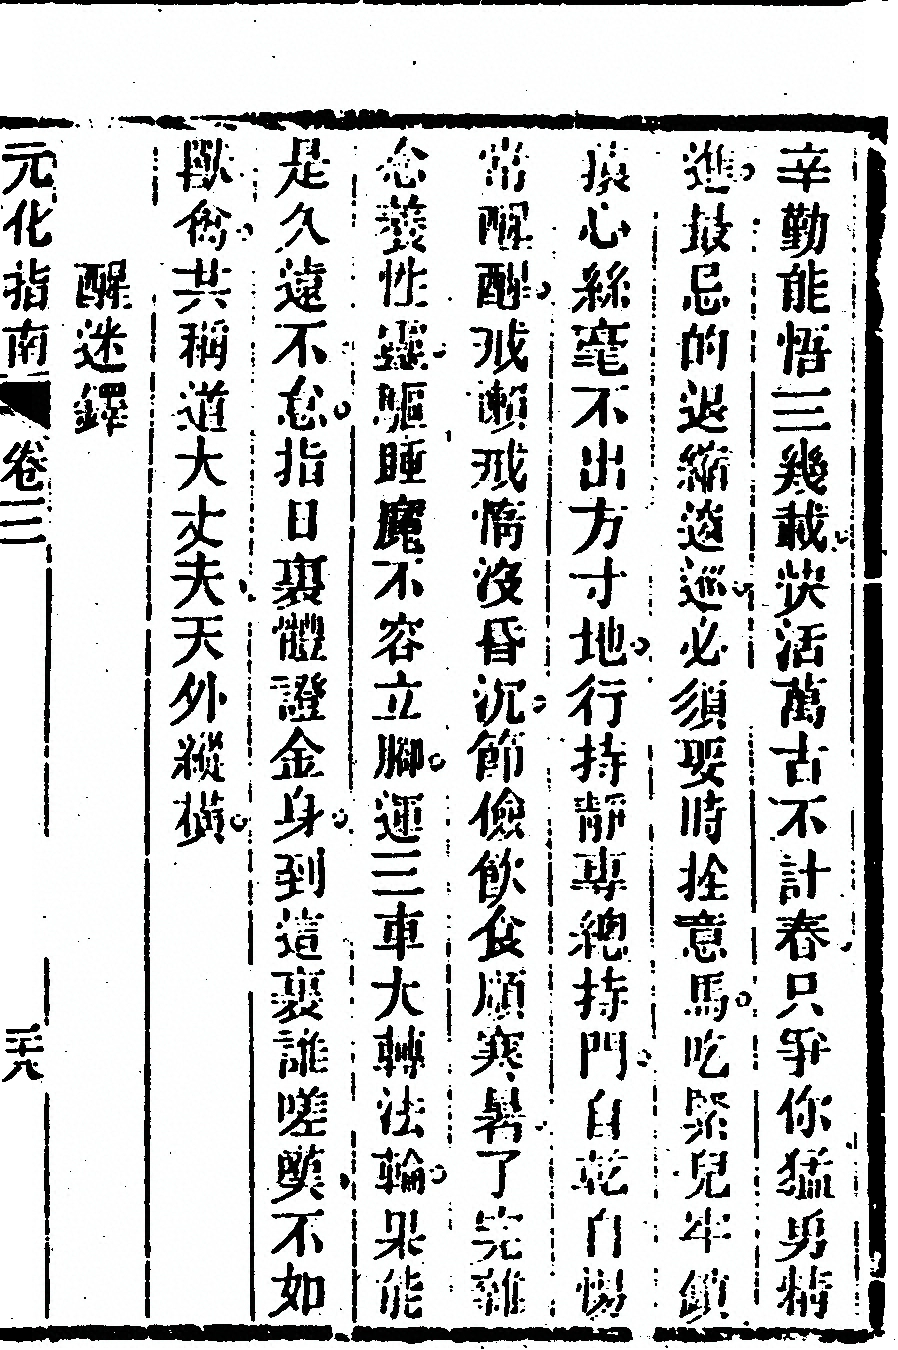 辛勤能悟三幾載快活萬古不計春只爭你猛勇精
進最忌的退縮逡巡必須要時拴意馬吃緊兒牢鎖
猿心絲毫不出方寸地行持靜專總持門自乾自惕
常醒醒戒懶戒惰沒昏沉節儉飲食順寒暑了完雜
念養性靈驅睡魔不容立腳運三車大轉法輪果能
是久遠不怠指日裏體證金身到這裏誰嗟嘆不如
獸禽共稱道大丈夫天外縱橫
醒迷鐸
元化指南 卷三 三十八